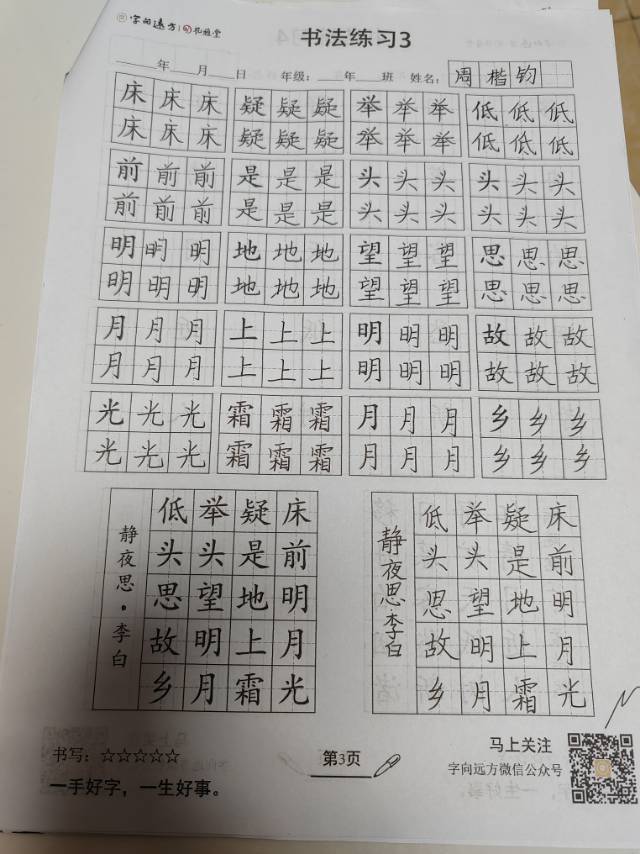 字向远方 书法练习3
____年____月____日 年级:____年____班 姓名: 周楷钧
床床床 疑疑疑 举举举 低低低
床床床 疑疑疑 举举举 低低低
前前前 是是是 头头头 头头头
前前前 是是是 头头头 头头头
明明明 地地地 望望望 思思思
明明明 地地地 望望望 思思思
月月月 上上上 明明明 故故故
月月月 上上上 明明明 故故故
光光光 霜霜霜 月月月 乡乡乡
光光光 霜霜霜 月月月 乡乡乡
床前明月光
疑是地上霜
举头望明月
低头思故乡
静夜思·李白
床前明月光
疑是地上霜
举头望明月
低头思故乡
静夜思 李白
书写:☆☆☆☆☆
一手好字,一生好事。
第3页
马上关注
字向远方微信公众号